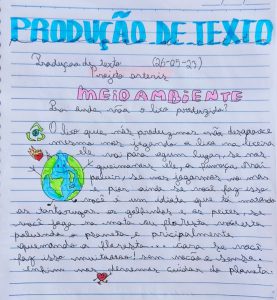 PRODUÇÃO DE TEXTO
Produçao de texto (26-05-23)
Projeto
MEIO AMBIENTE
Por onde vão o lixo produzido?
O lixo que nós produzimos não desaparece
mesmo nos jogando o lixo na lixeira
ele vai para algum lugar, se nós
queimamos ele, a fumaça vai
poluir, se nos jogarmos no mar
e pior, ainda se você faz isso
você é um idiota que ta matando
as tartarugas os golfinhos e os peixes, se
você joga na mata ou floresta você ta
poluindo o planeta e principalmente
queimando a floresta... cara se você
faz isso muitaaaa! sem noção e senso.
enfim nos devemos cuidar do planeta.